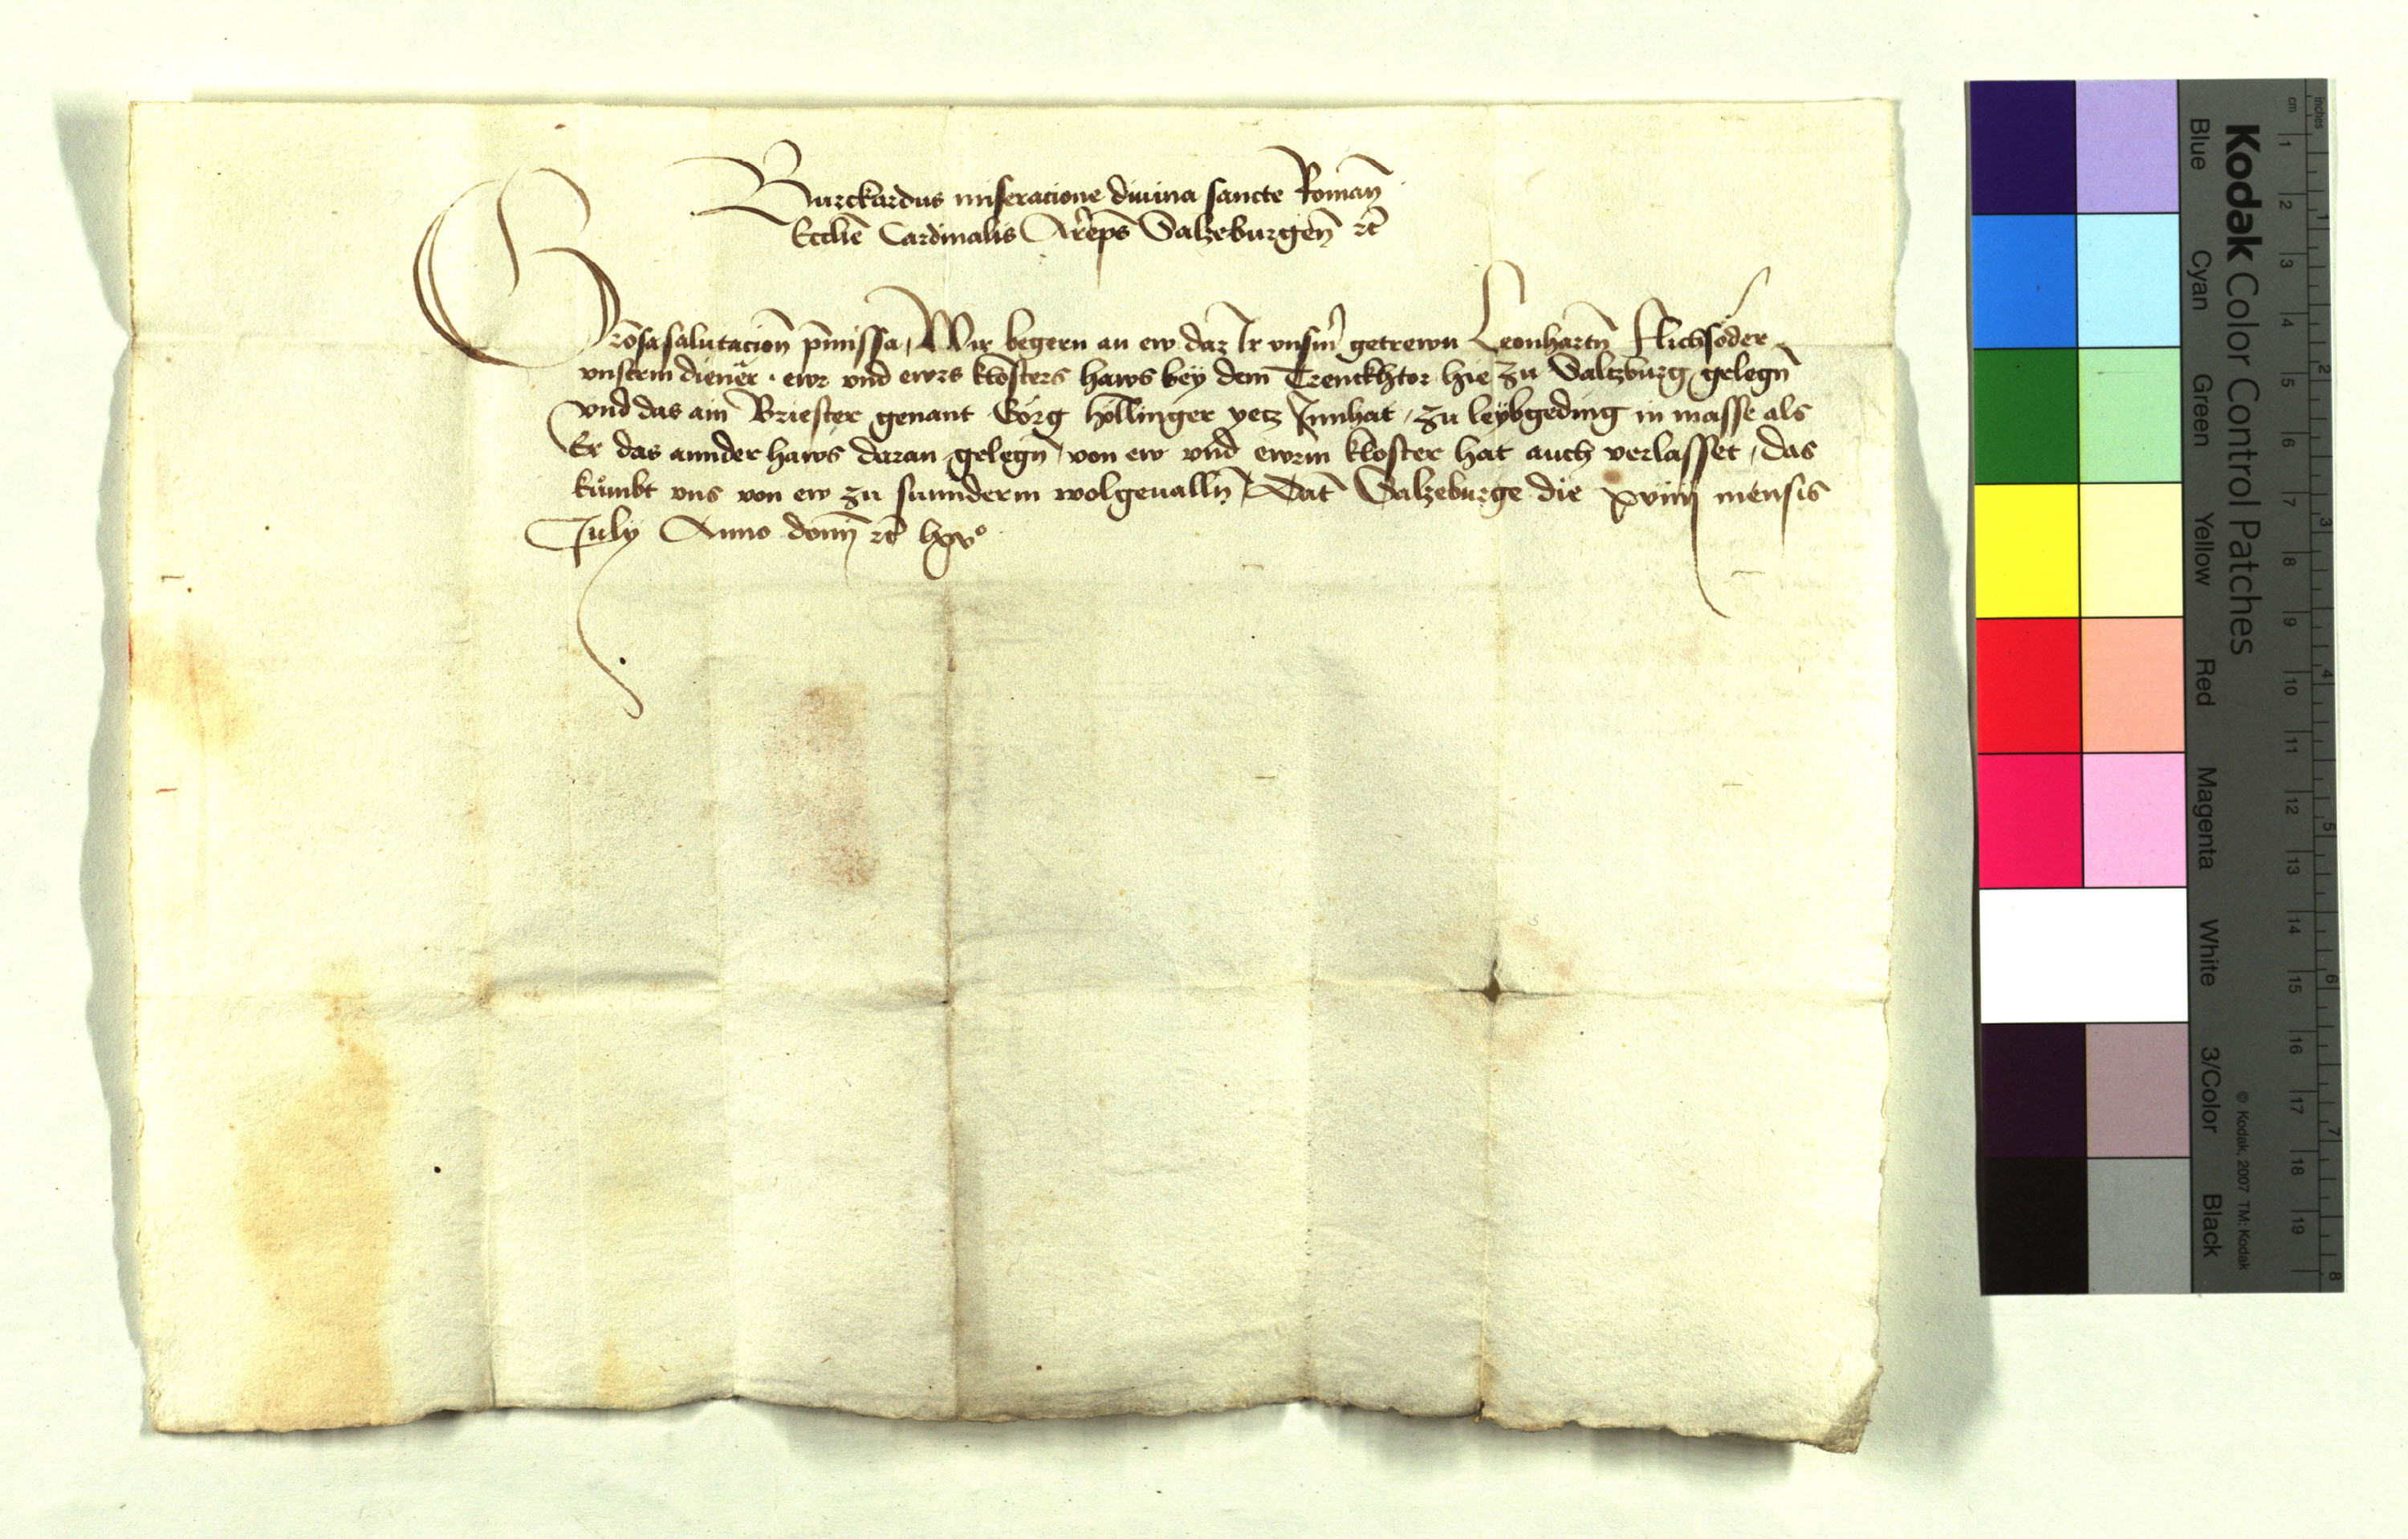 Burckardus miseracione diuina sancte Roman̄
Ecclie͞ Cardinalis Ar͞eps͞ Salzeburgen̄ rc͞
Gro͞sa salutacion̄ pm͞issa, Wir begern an ew daz Ir vnserm̄ getrewn Leonhartn̄ Aichsöder
vnserm diener. ewr vnd ewrs klosters haws bey dem Trenckhtor hie zu Saltzburg gelegn̄
vnd das ain Briester genant Görg höllinger yetz Innhat, zu leÿbgeding in masse als
Er das annder haws daran gelegn̄, von ew vnd ewrm kloster hat auch verlasset, das
kůmbt vns von ew zu sunnderm wolgeualln̄, Dat͞ Salzeburge die xviiij mensis
July Anno domj̄ rc͞ lxv°
Kodak Color Control Patches
Blue Cyan Green Yellow Red Magenta White 3/Color Black
© Kodak, 2007 TM: Kodak
cm 1 2 3 4 5 6 7 8 9 10 11 12 13 14 15 16 17 18 19
inches 1 2 3 4 5 6 7 8